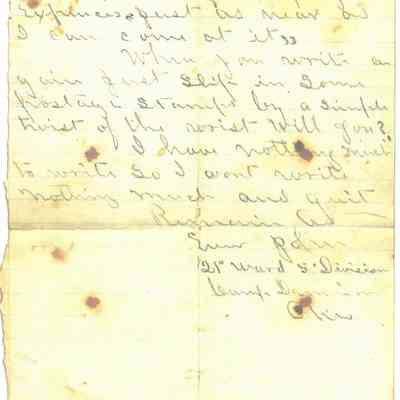 Expences just as near as
I can come at it"
When you write a
gain just slip in some
postage stamps by a simple
twist of the wrist will you?
I have nothing much
to write So I wont write
nothing much and quit
Remain as
Ever John
21st Ward 5" Division
Camp Dennison
Ohio